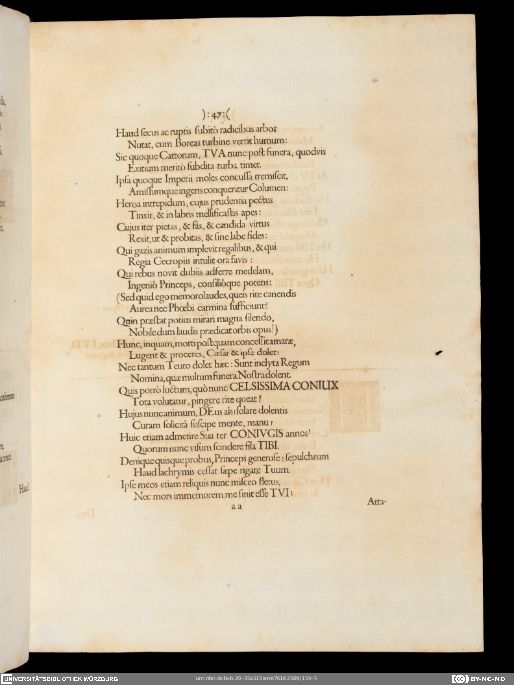 ):47:(
Haud secus ac ruptis subitò radicibus arbor
Nutat, cum Boreas turbine verrit humum:
Sic quoque Cattorum, TVA nunc post funera, quodvis
Exitium meritò subdita turba timet.
Ipsa quoque Imperii moles concussa tremiscit,
Amissumque ingens conqueritur Columen:
Heroa intrepidum, cujus prudentia pectus
Tinxit, & in labris mellificastis apes:
Cujus iter pietas, & fas, & candida virtus
Rexit, ut & probitas, & sine labe fides:
Qui gazis animum implevit regalibus, & qui
Regia Cecropiis intulit ora favis:
Qui rebus novit dubiis adferre medelam,
Ingeniô Princeps, consiliôque potens:
(Sed quid ego memoro laudes, queis rite canendis
Aurea nec Phœbi carmina sufficiunt?
Quin præstat potius mirari magna silendo,
Nobile dum laudis prædicat orbis opus!)
Hunc, inquam, morti postquam concessit amaræ,
Lugent & proceres, Cæsar & ipse dolet:
Nec tantum Teuto dolet hæc: Sunt inclyta Regum
Nomina, quæ multum funera Nostra dolent.
Quis porrò luctum, quô nunc CELSISSIMA CONIUX
Tota volutatur, pingere rite queat?
Hujus nunc animum, DEus ah! solare dolentis
Curam solicitâ suscipe mente, manu!
Huic etiam admetire Sua ter CONIVGIS annos!
Quorum nunc visum scindere fila TIBI.
Denique quisque probus, Princeps generose: sepulchrum
Haud lachrymis cessat sæpe rigare Tuum.
Ipse meos etiam reliquis nunc misceo fletus,
Nec mors immemorem me sinit esse TVI:
aa
Atta-
Haud
UNIVERSITÄTSBIBLIOTHEK WÜRZBURG
CC BY-NC-ND